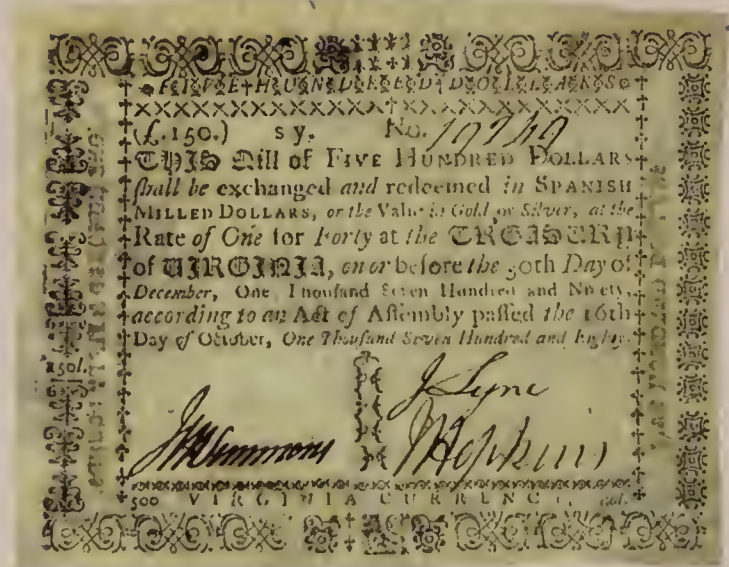 FIVE HUNDREED DOLLARS
(£.150.) sy. No. 19749
THIS Bill of FIVE HUNDRED DOLLARS
ſhall be exchanged and redeemed in SPANISH
MILLED DOLLARS, or the Value in Gold or Silver, at the
Rate of One for Forty at the TREASURY
of VIRGINIA, on or before the 30th Day of
December, One Thouſand Seven Hundred and Ninety,
according to an Act of Aſſembly paſſed the 16th
Day of October, One Thouſand Seven Hundred and Eighty.
150l.
J Lyne
JM Simmons
J Hopkins
500 VIRGINIA CURRENCY,